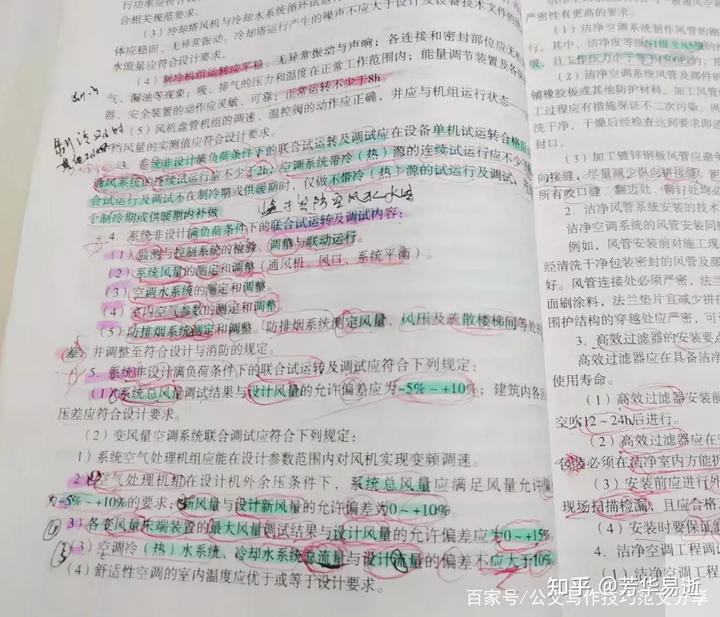 行功率应
合相关规范要求。
(3)冷却塔风机与冷却水系统循环试运行
体应稳固、无异常振动,冷却塔运行产生的噪声不应大于设计及设备技术文件的
水流量应符合设计要求。
(4)制冷机组运转应平稳、无异常振动与声响;各连接和密封部位应无
气、漏油等现象;吸、排气的压力和温度在正常工作范围内;能量调节装置及各
器、安全装置的动作应灵敏、可靠;正常运转不少于8h。
(5)风机盘管机组的调速、温控阀的动作应正确,并应与机组运行状态
档风量的实测值应符合设计要求。
3. 系统非设计满负荷条件下的联合试运转及调试应在设备单机试运转合格后
通风系统的连续试运行应不少于2h,空调系统带冷(热)源的连续试运行应不少于
合试运行及调试不在制冷期或供暖期时,仅做不带冷(热)源的试运行及调试,
个制冷期或供暖期内补做。
4. 系统非设计满负荷条件下的联合试运转及调试内容:
(1)监测与控制系统的检验、调整与联动运行。
(2)系统风量的测定和调整(通风机、风口、系统平衡)。
(3)空调水系统的测定和调整。
(4)室内空气参数的测定和调整。
(5)防排烟系统测定和调整。防排烟系统测定风量、风压及疏散楼梯间等处的
差,并调整至符合设计与消防的规定。
5. 系统非设计满负荷条件下的联合试运转及调试应符合下列规定:
(1)系统总风量调试结果与设计风量的允许偏差应为-5%~+10%;建筑内各
压差应符合设计要求。
(2)变风量空调系统联合调试应符合下列规定:
1)系统空气处理机组应能在设计参数范围内对风机实现变频调速。
2)空气处理机组在设计机外余压条件下,系统总风量应满足风量允许偏
为-5%~+10%的要求;新风量与设计新风量的允许偏差为0~+10%。
3)各变风量末端装置的最大风量调试结果与设计风量的允许偏差应为0~+15%
(3)空调冷(热)水系统、冷却水系统总流量与设计流量的偏差不应大于10%
(4)舒适性空调的室内温度应优于或等于设计要求。
严密性有更高的要求。
(1)洁净空调系统制作风管的刚
行。其中,洁净度等级N1级至N5级的
级,且工作压力小于等于1500Pa的,按
(2)洁净空调系统风管及部件的
铺橡胶板或其他防护材料。加工风管
工过程应有措施保证不二次污染。风
洗干净,干燥后经检查达到要求即进
封口。
(3)加工镀锌钢板风管应避免
向接缝,尽量减少纵向拼接缝。
所有咬口缝、翻边处、铆钉处均
2. 洁净风管系统安装的技术
洁净空调系统的风管安装同
例如,风管安装前对施工现
经清洗干净包装密封的风管及部
好。风管连接处必须严密,法兰
面刷涂料,法兰垫片宜减少拼接
围护结构的穿越处应严密,可
3. 高效过滤器的安装要点
高效过滤器应在具备洁净
使用寿命。
(1)高效过滤器安装前
空吹12~24h后进行。
(2)高效过滤器应在
包装必须在洁净室内方能拆
(3)安装前应进行外
现场扫描检漏,且应合格
(4)安装时要保证滤
4. 洁净空调工程调试
(1)洁净空调工程
知乎 @芳华易逝
百家号/公文写作技巧范文分享